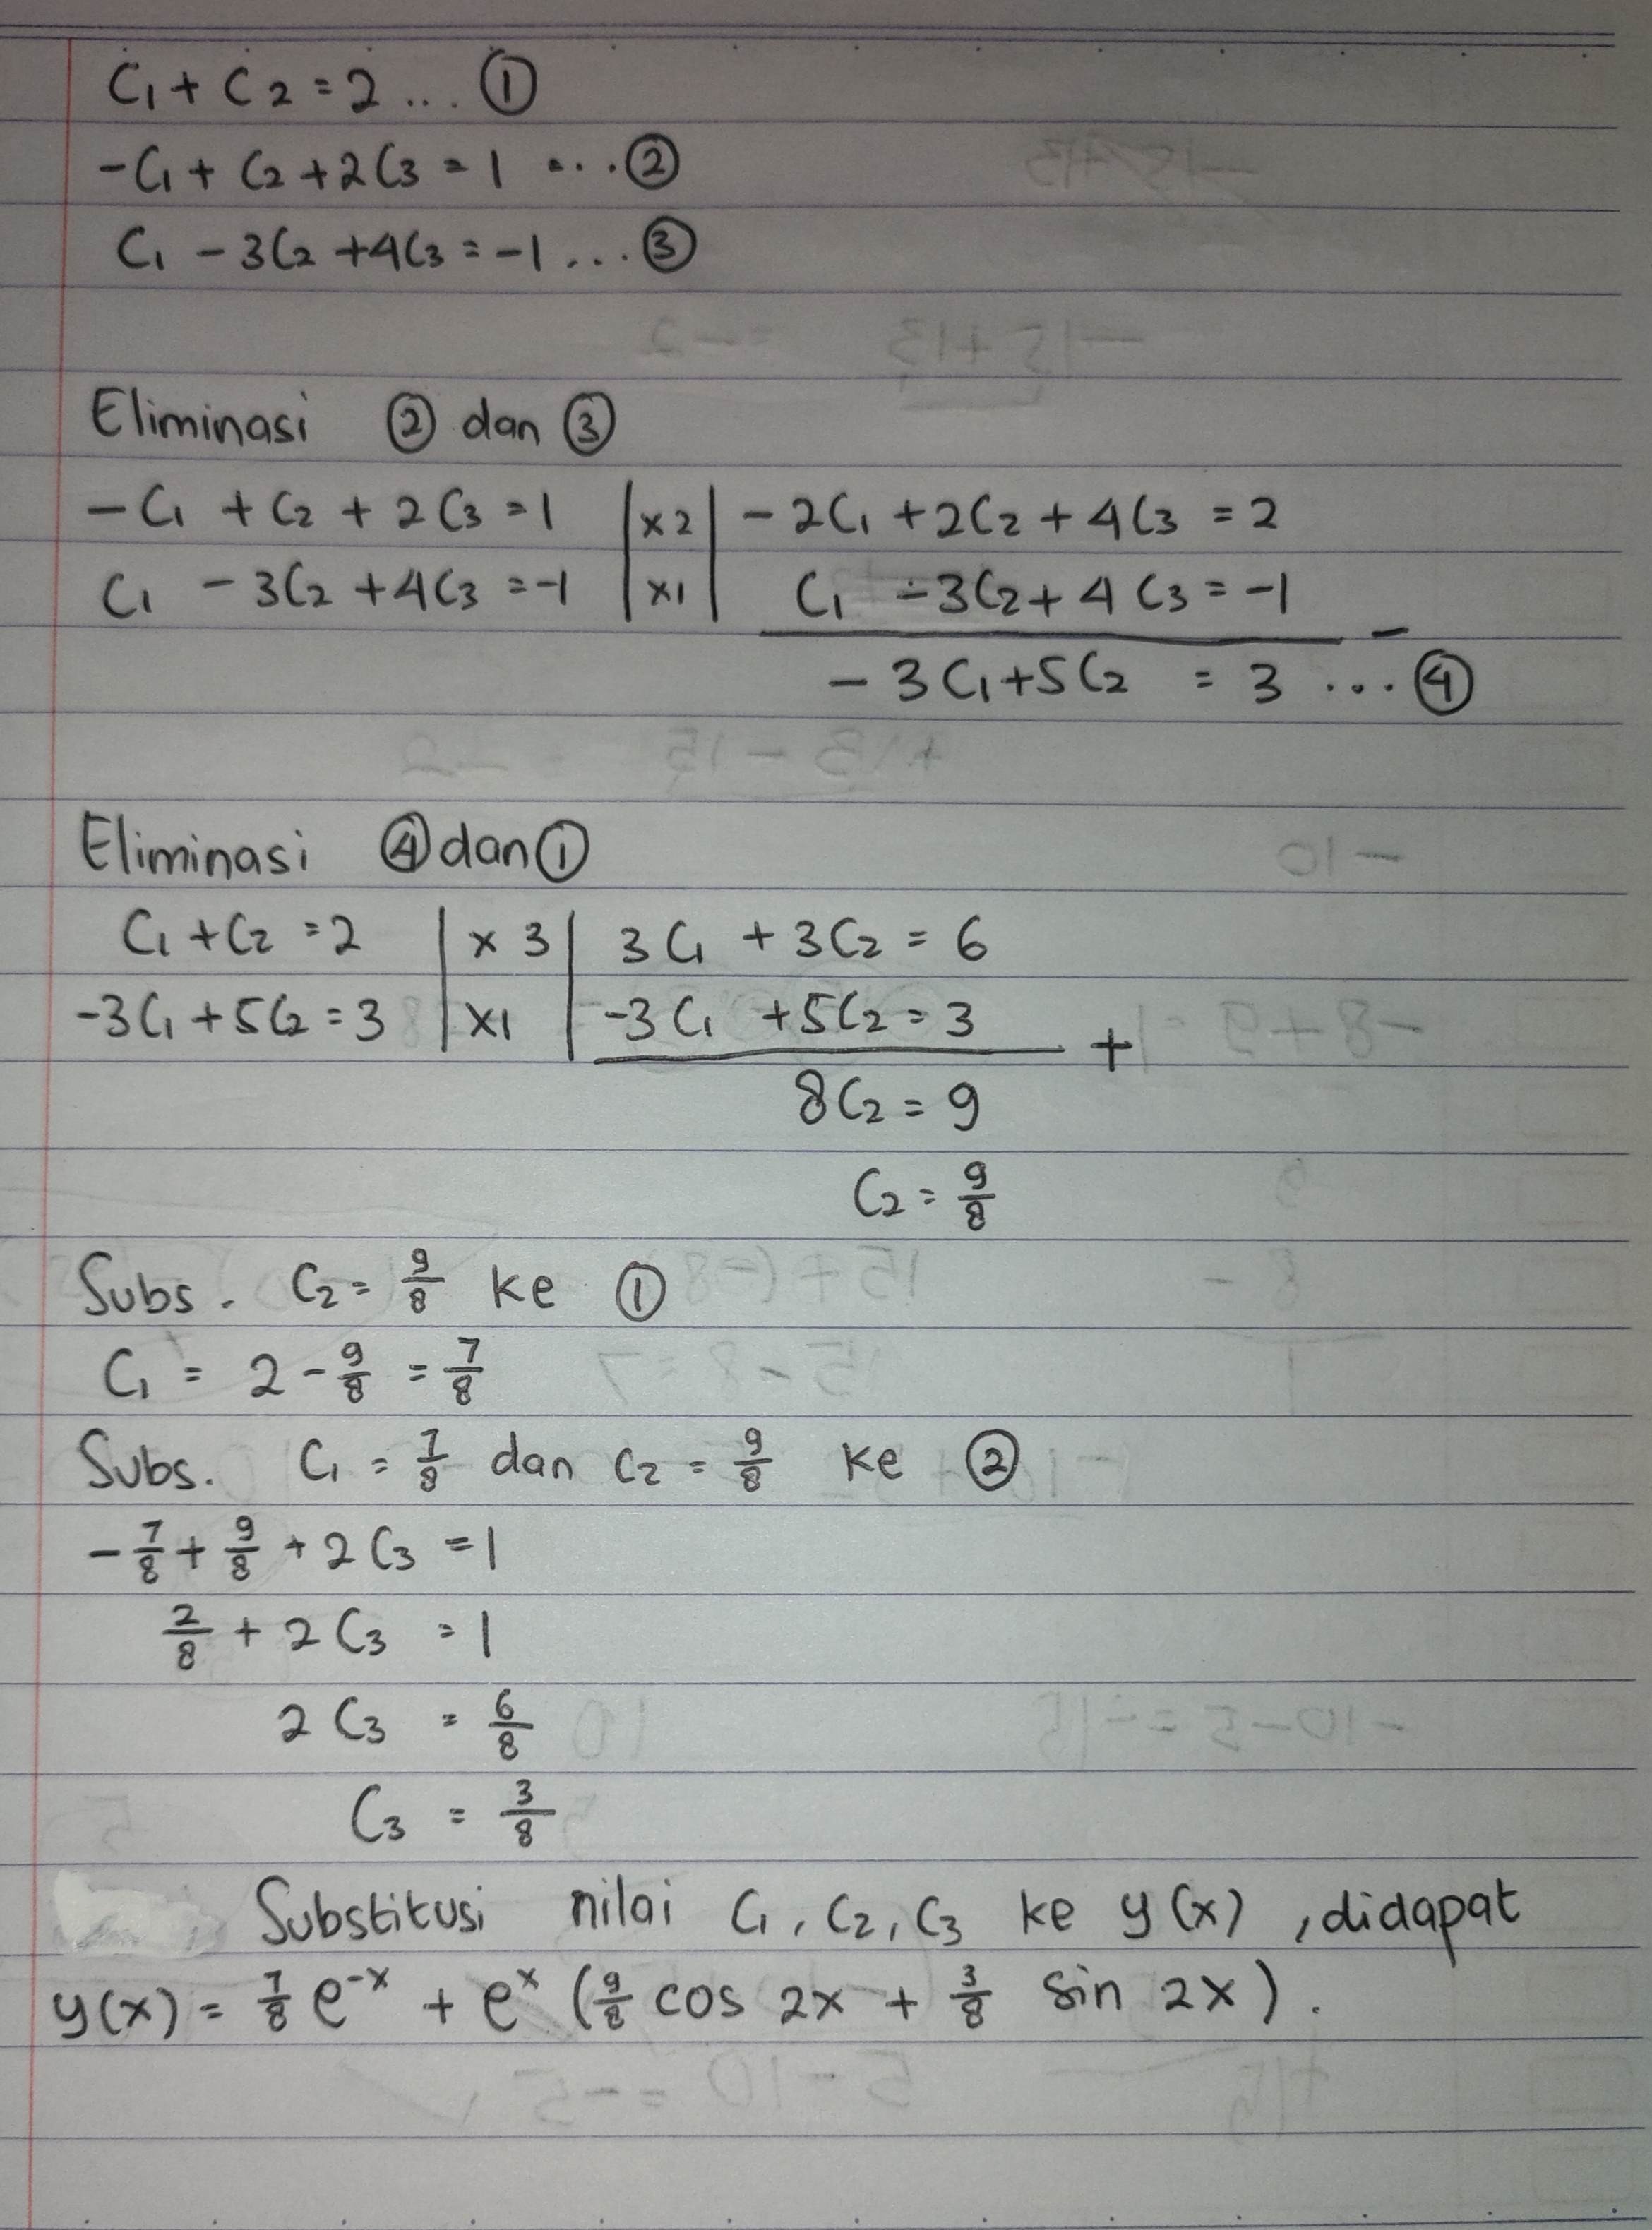 C₁ + C₂ = 2 ... ①
-C₁ + C₂ + 2C₃ = 1 ... ②
C₁ - 3C₂ + 4C₃ = -1 ... ③
Eliminasi ② dan ③
-C₁ + C₂ + 2C₃ = 1 | x2 | -2C₁ + 2C₂ + 4C₃ = 2
C₁ - 3C₂ + 4C₃ = -1 | x1 | C₁ - 3C₂ + 4C₃ = -1 -
-3C₁ + 5C₂ = 3 ... ④
Eliminasi ④ dan ①
C₁ + C₂ = 2 | x 3 | 3C₁ + 3C₂ = 6
-3C₁ + 5C₂ = 3 | x1 | -3C₁ + 5C₂ = 3 +
8C₂ = 9
C₂ = 9/8
Subs. C₂ = 9/8 ke ①
C₁ = 2 - 9/8 = 7/8
Subs. C₁ = 7/8 dan C₂ = 9/8 ke ②
-7/8 + 9/8 + 2C₃ = 1
2/8 + 2C₃ = 1
2C₃ = 6/8
C₃ = 3/8
Substitusi nilai C₁, C₂, C₃ ke y(x), didapat
y(x) = 7/8 e⁻ˣ + eˣ (9/8 cos 2x + 3/8 sin 2x).